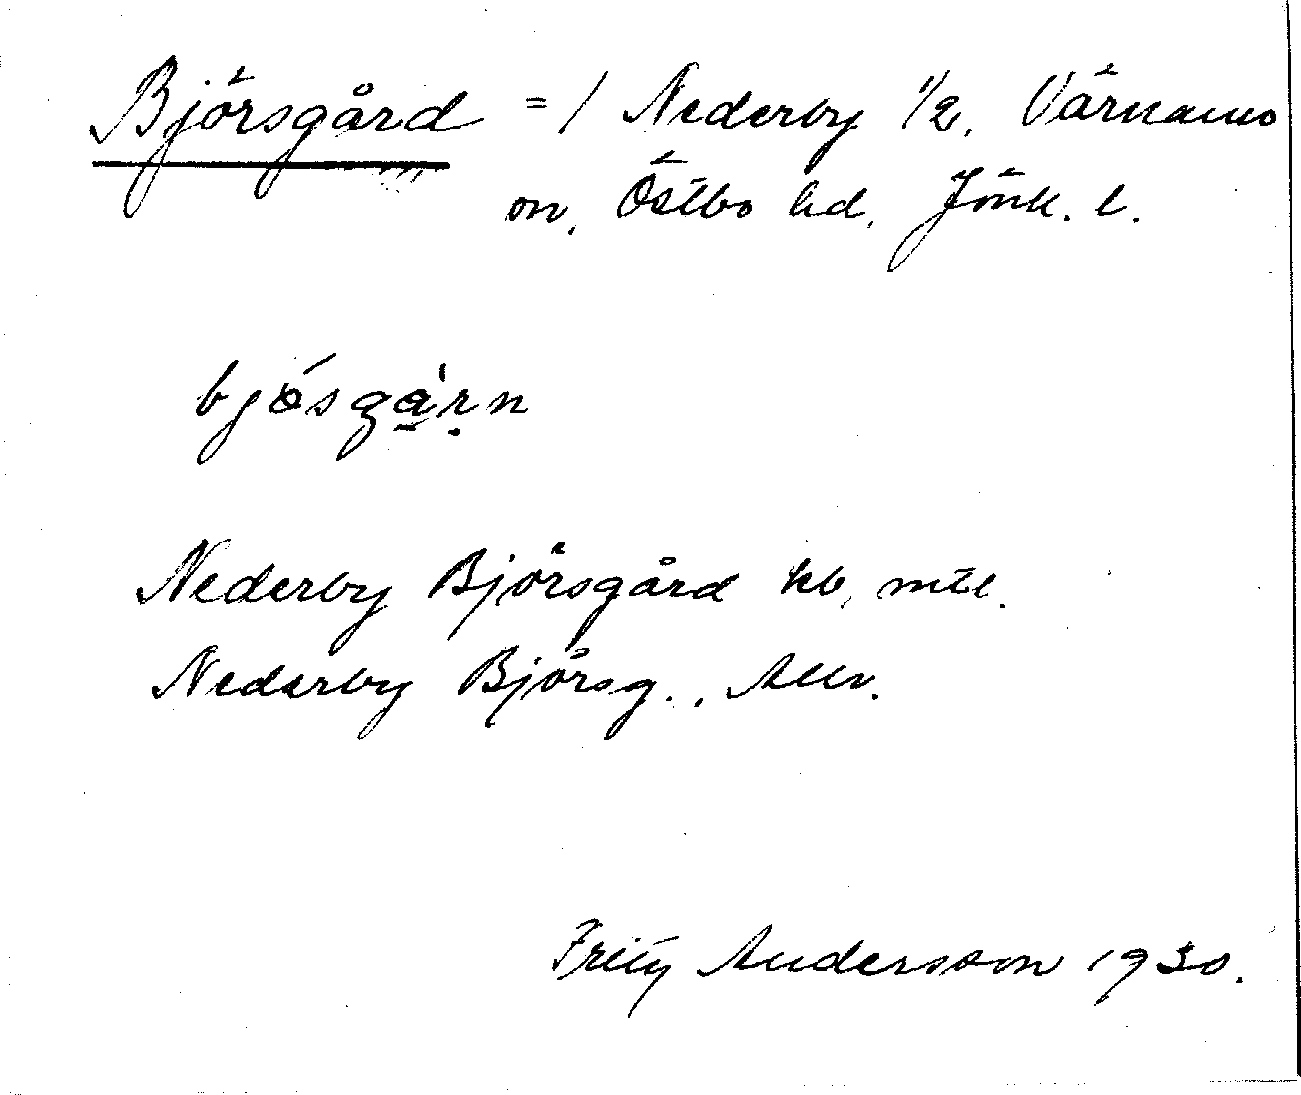 Björsgård = / Nederby 1/2, Värnamo
sn, Östbo hd, Jönk. l.
bjǿsgὰ̰ṛn
Nederby Björsgård kb, mtl.
Nederby Björsg.,
Fritz Andersson 1930.